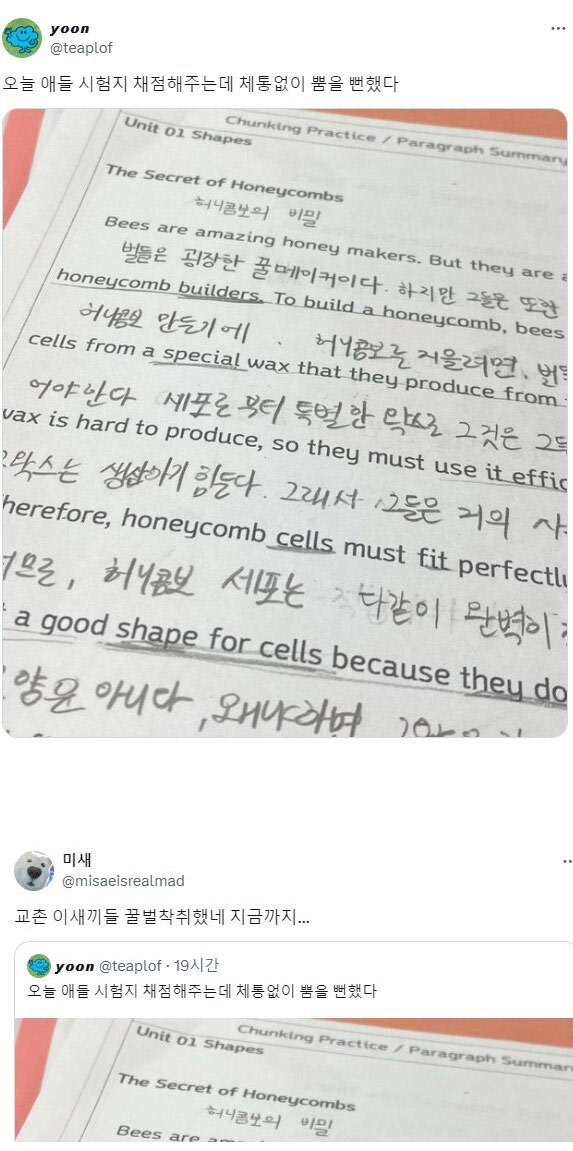 yoon
@teaplof
오늘 애들 시험지 채점해주는데 체통없이 뿜을 뻔했다
Chunking Practice / Paragraph Summary
Unit 01 Shapes
The Secret of Honeycombs
허니콤보의 비밀
Bees are amazing honey makers. But they are
벌들은 굉장한 꿀메이커이다. 하지만 그들은 또한
honeycomb builders. To build a honeycomb, bees
허니콤보 만들기에. 허니콤보를 지을려면, 벌들
cells from a special wax that they produce from
어야한다 세포로부터 특별한 왁스로 그것은 그
wax is hard to produce, so they must use it effic
왁스는 생삼하기 힘들다. 그래서 그들은 거의
herefore, honeycomb cells must fit perfectl
므로, 허니콤보 세포는 다같이 완벽이
a good shape for cells because they do
양은 아니다, 왜냐하면
미새
@misaeisrealmad
교촌 이새끼들 꿀벌착취했네 지금까지...
yoon @teaplof · 19시간
오늘 애들 시험지 채점해주는데 체통없이 뿜을 뻔했다
Chunking Practice / Paragraph Summar
Unit 01 Shapes
The Secret of Honeycombs
허니콤보의 비밀
Bees are